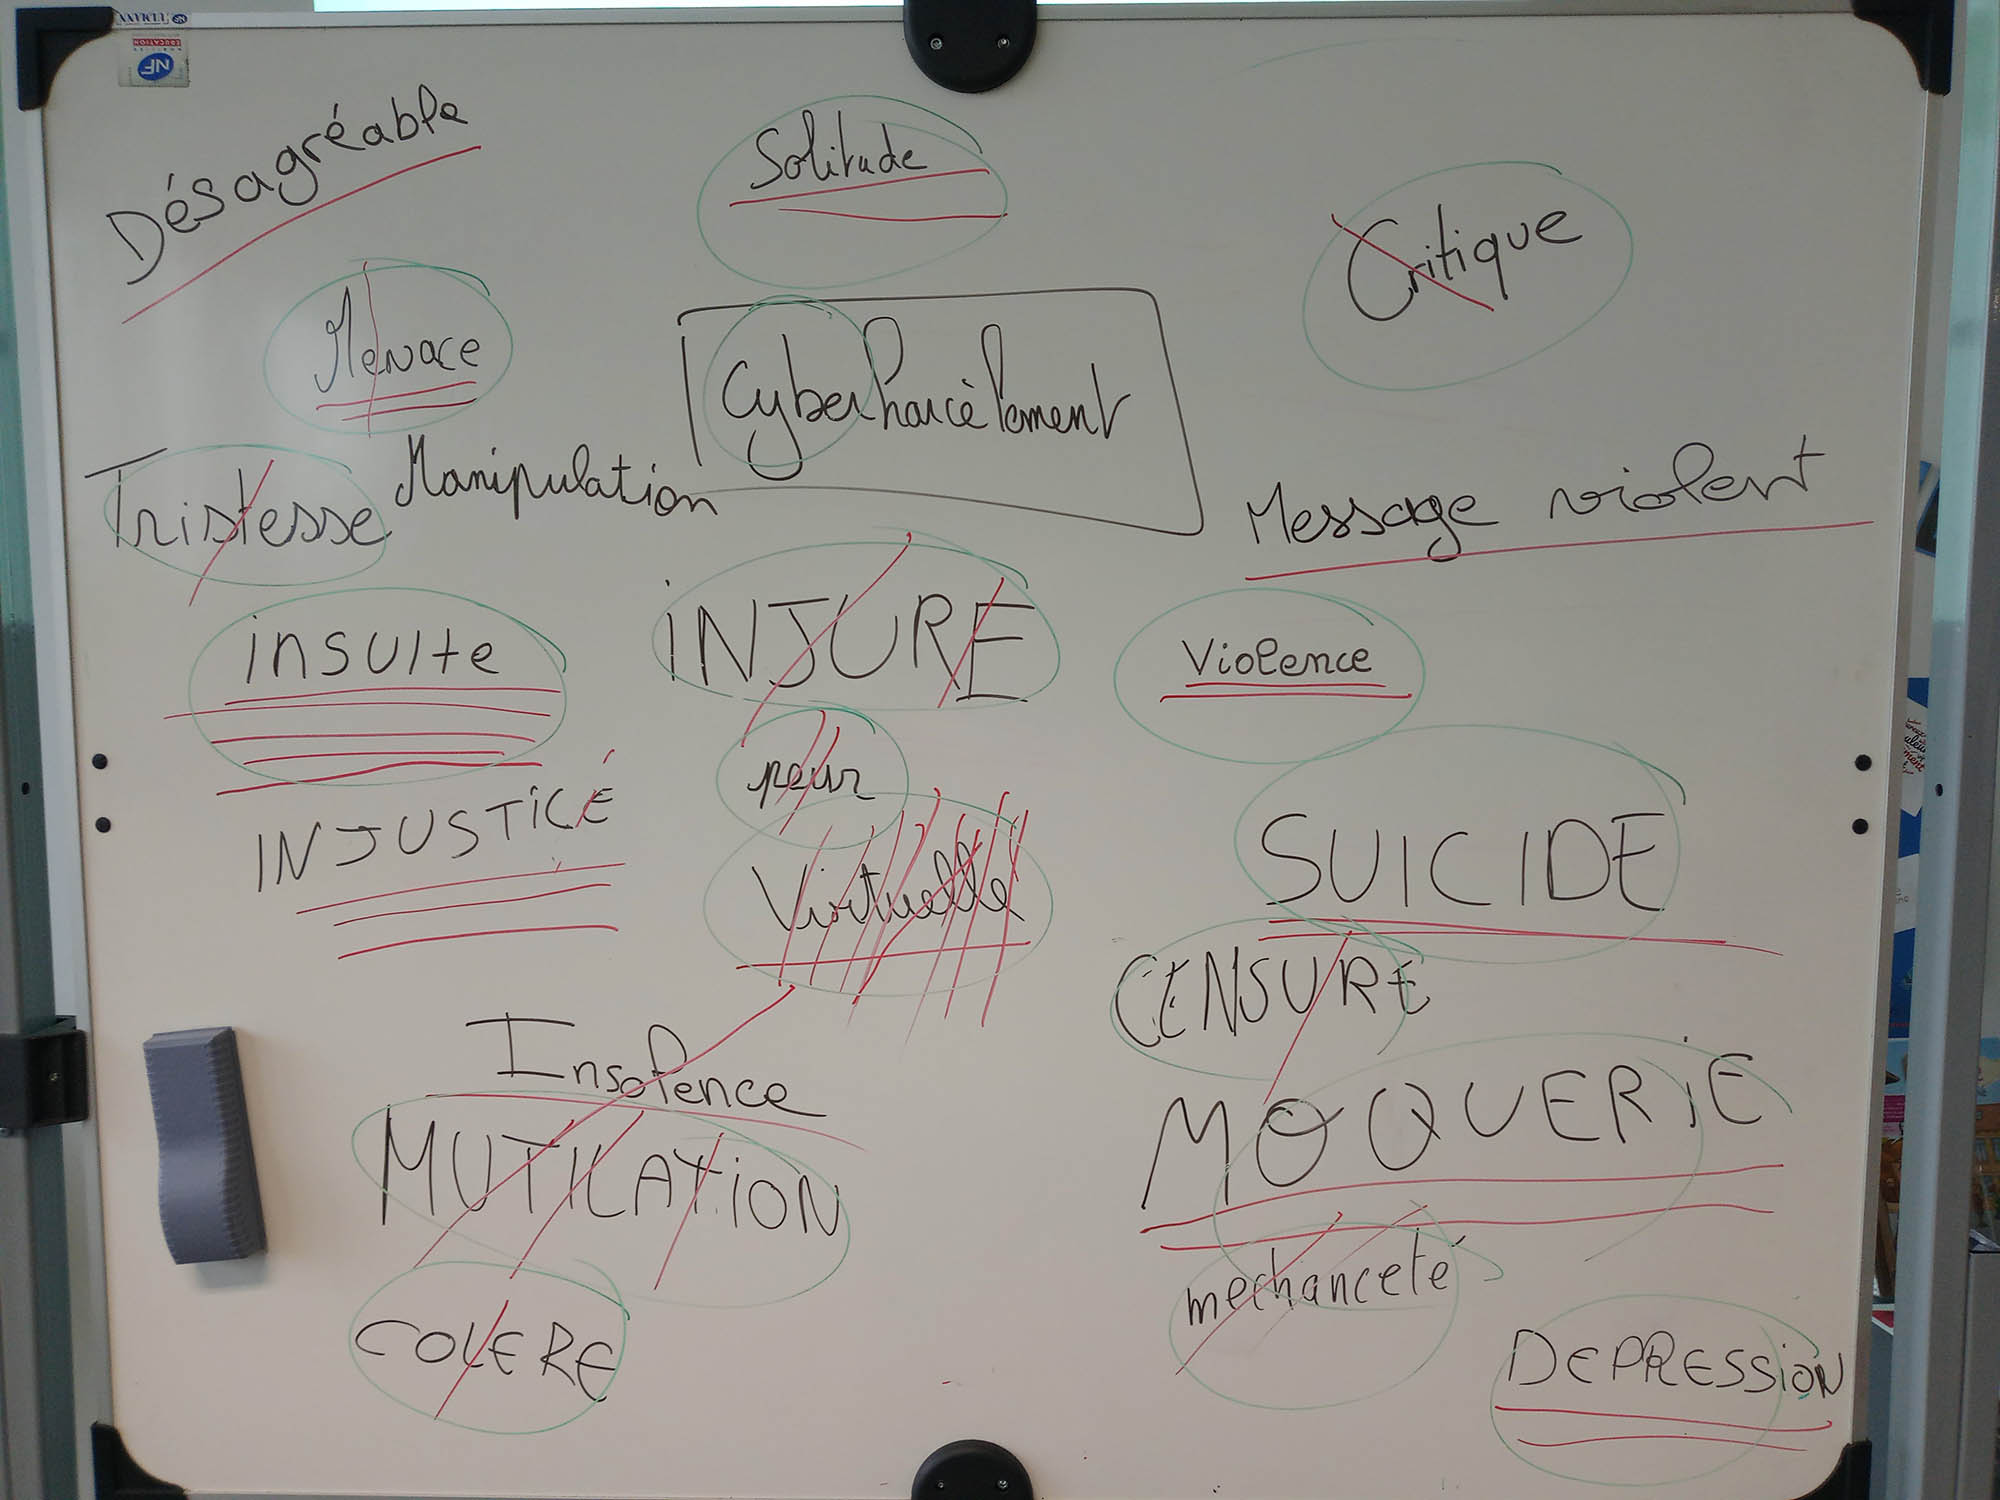 Désagréable
Solitude
Critique
Menace
Cyberharcèlement
Tristesse
Manipulation
Message violent
insulte
iNJURE
Violence
peur
INJUSTiCÉ
Virtuelle
SUICIDE
CENSURE
Insolence
MUTILATiON
MOQUERiE
mechanceté
COLERE
DEPRESSiON
NF
EDUCATION